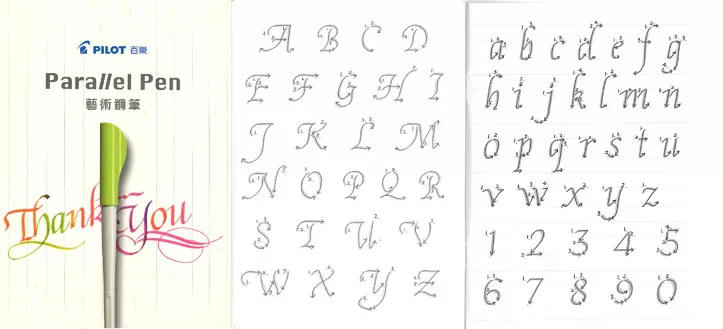 PILOT 百樂
Parallel Pen
藝術鋼筆
Thank You
A B C D
E F G H I
J K L M
N O P Q R
S T U V
W X Y Z
a b c d e f g
h i j k l m n
o p q r s t u
v w x y z
1 2 3 4 5
6 7 8 9 0